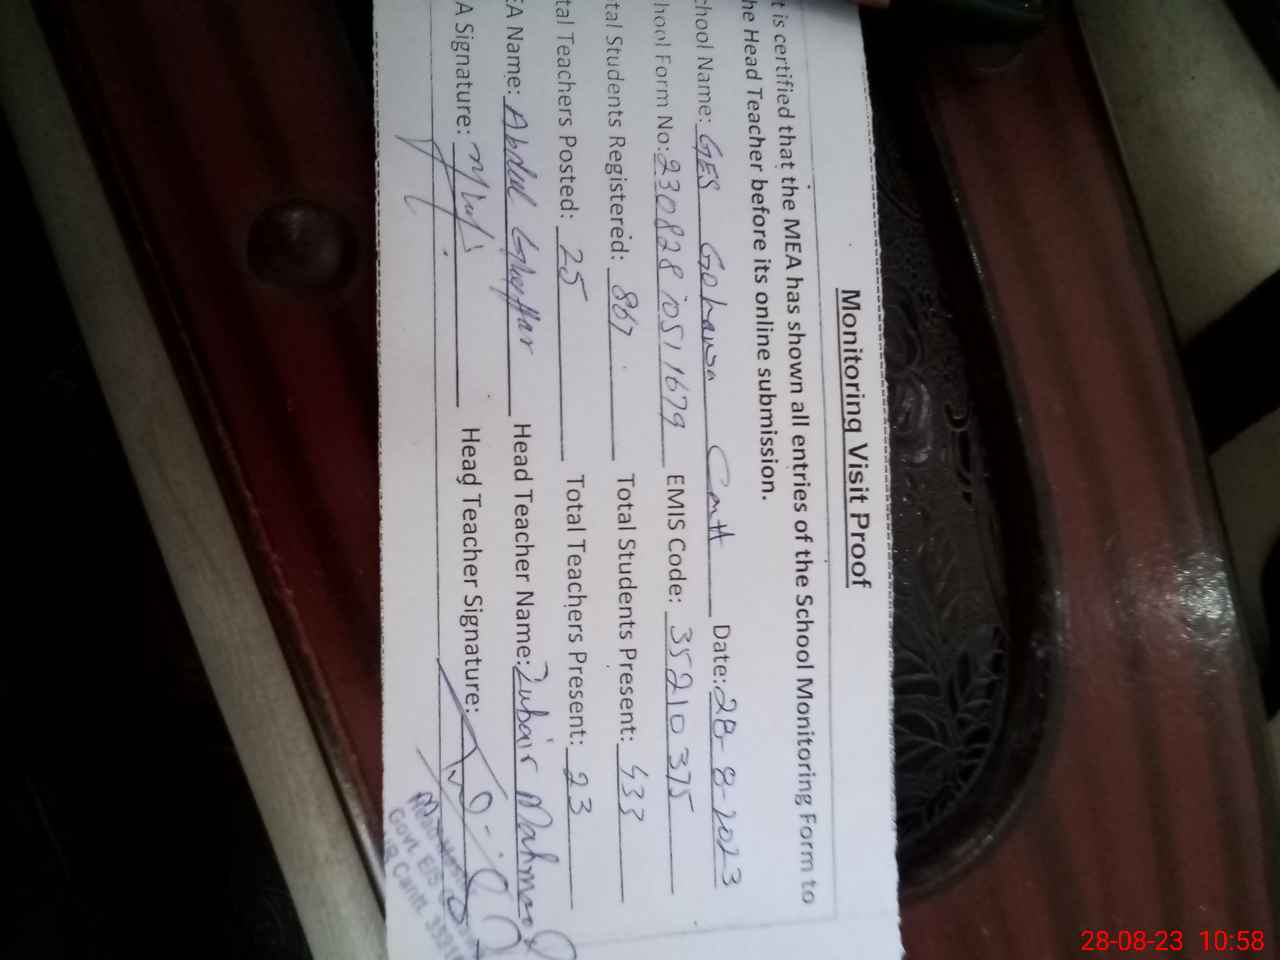 Monitoring Visit Proof
t is certified that the MEA has shown all entries of the School Monitoring Form to
he Head Teacher before its online submission.
chool Name: GES Gohawa Cantt Date: 28-8-2023
hool Form No: 230828 10511679 EMIS Code: 35210375
tal Students Registered: 867 Total Students Present: 433
tal Teachers Posted: 25 Total Teachers Present: 23
EA Name: Abdul Ghaffar Head Teacher Name: Zubair Mahmood
A Signature: Head Teacher Signature:
Govt. E/S
Cantt.
28-08-23 10:58